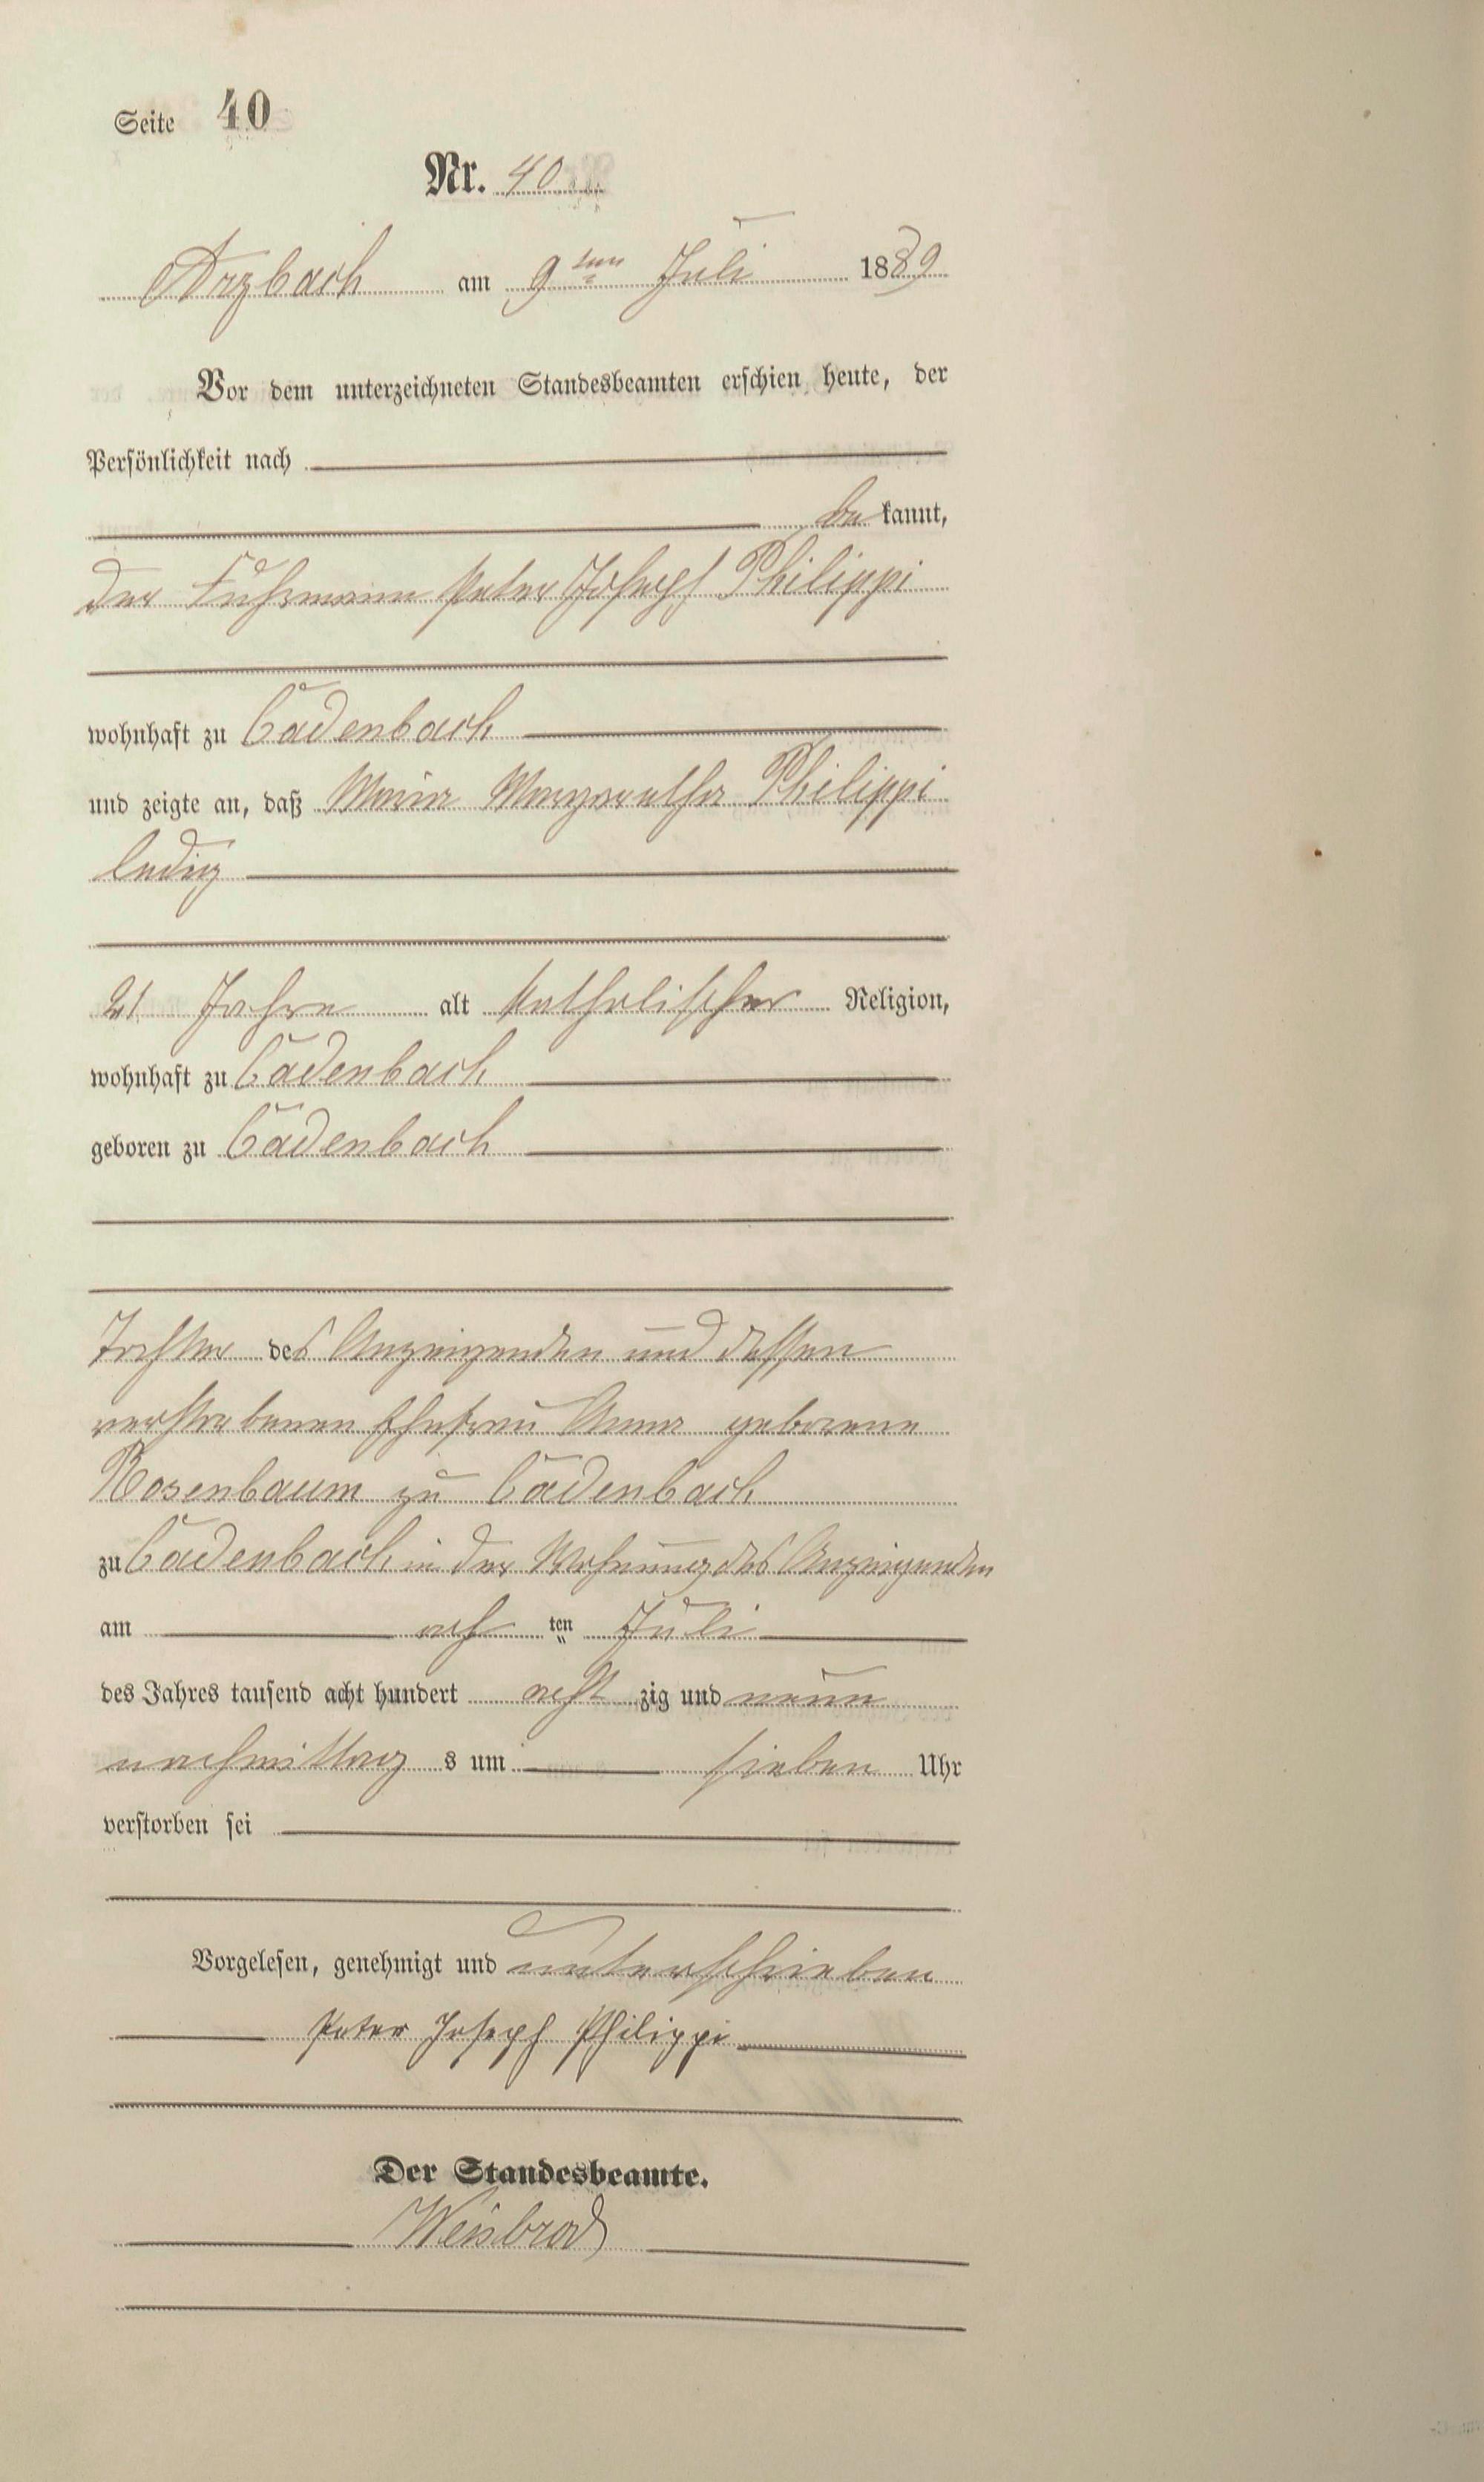 Seite 40
Nr. 40
Arzbach am 9ten Juli 1889
Vor dem unterzeichneten Standesbeamten erschien heute, der
Persönlichkeit nach
be kannt,
der Fuhrmann Peter Joseph Philippi
wohnhaft zu Cadenbach
und zeigte an, daß Maria Margaretha Philippi
ledig
21 Jahre alt katholischer Religion,
wohnhaft zu Cadenbach
geboren zu Cadenbach
Tochter des Anzeigenden und dessen
verstorbenen Ehefrau Anna geborene
Rosenbaum zu Cadenbach
zu Cadenbach in der Wohnung des Anzeigenden
am ach ten Juli
des Jahres tausend acht hundert acht zig und neun
nachmittag s um sieben Uhr
verstorben sei
Vorgelesen, genehmigt und unterschrieben
Peter Joseph Philippi
Der Standesbeamte.
Weisbrod